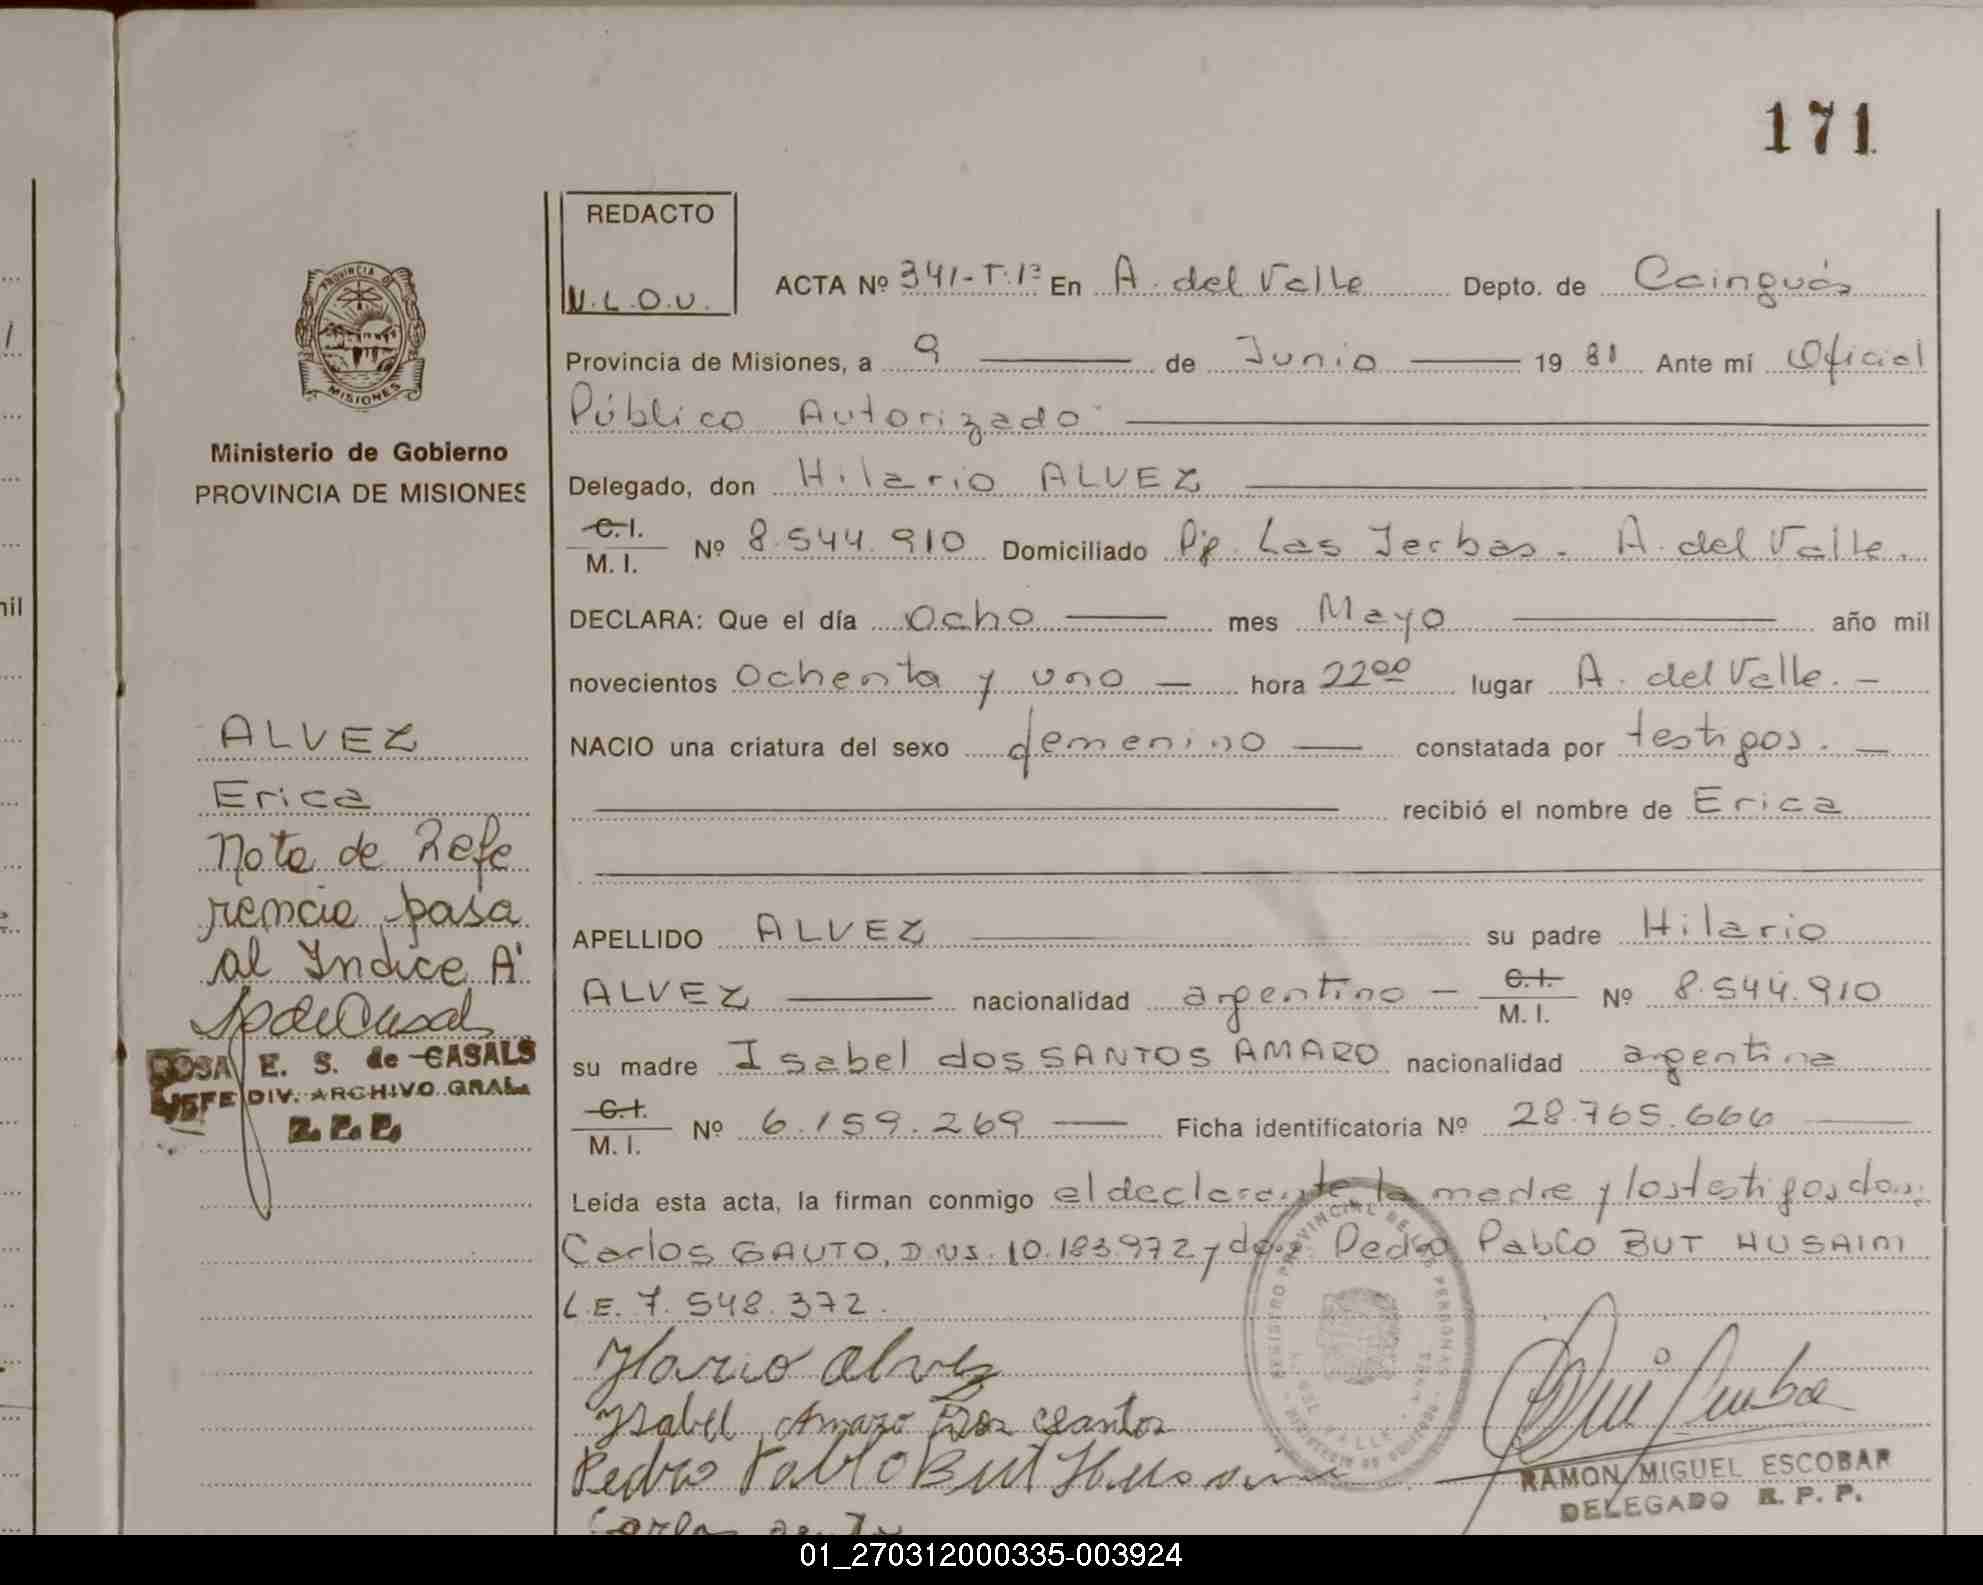 171
REDACTO
N.L.O.U.
ACTA Nº 341-T.1º En A. del Valle Depto. de Cainguás
Provincia de Misiones, a 9 de Junio 19 81 Ante mí Oficial
Público Autorizado
Delegado, don Hilario ALVEZ
C.I.
M. I. Nº 8.544.910 Domiciliado Pje. Las Yerbas. A. del Valle.
DECLARA: Que el día ocho mes Mayo año mil
novecientos ochenta y uno — hora 22⁰⁰ lugar A. del Valle. —
NACIO una criatura del sexo femenino — constatada por testigos. —
recibió el nombre de Erica
APELLIDO ALVEZ su padre Hilario
ALVEZ nacionalidad argentino — C.I.
M. I. Nº 8.544.910
su madre Isabel dos SANTOS AMARO nacionalidad argentina
C.I.
M. I. Nº 6.159.269 Ficha identificatoria Nº 28.765.666
Leída esta acta, la firman conmigo el declarante, la madre y los testigos don:
Carlos GAUTO, D.N.I. 10.183.972 y don Pedro Pablo BUT HUSAIM
L.E. 7.548.372.
Hilario Alvez
Isabel Amaro Dos Santos
Pedro Pablo But Husaim
RAMON MIGUEL ESCOBAR
DELEGADO R. P. P.
PROVINCIA DE
MISIONES
Ministerio de Gobierno
PROVINCIA DE MISIONES
ALVEZ
Erica
Nota de Refe
rencia pasa
al Indice A'
ROSA E. S. de CASALS
JEFE DIV. ARCHIVO GRAL.
R. P. P.
nil
01_270312000335-003924